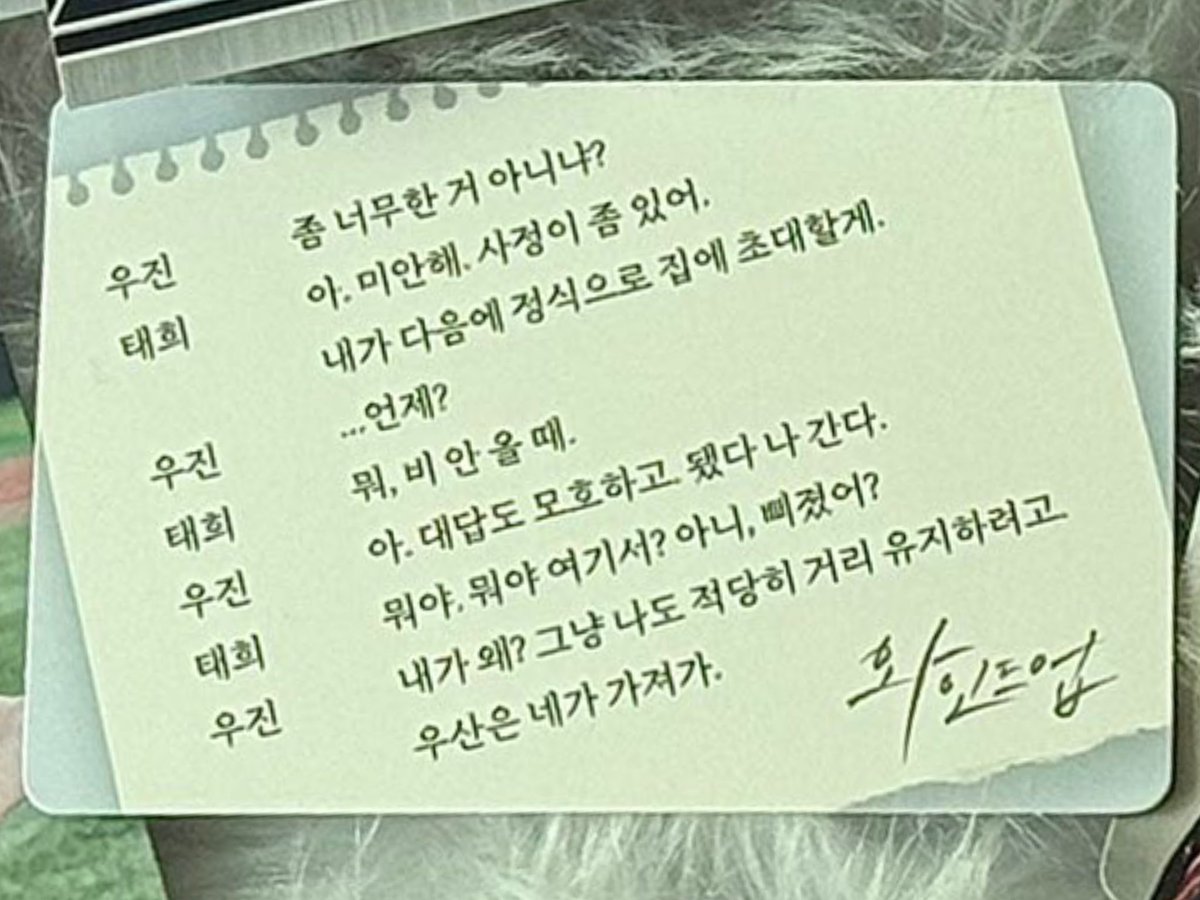 우진 좀 너무한 거 아니냐?
태희 아. 미안해. 사정이 좀 있어.
내가 다음에 정식으로 집에 초대할게.
우진 ...언제?
태희 뭐, 비 안 올 때.
우진 아. 대답도 모호하고. 됐다 나 간다.
태희 뭐야. 뭐야 여기서? 아니, 삐졌어?
우진 내가 왜? 그냥 나도 적당히 거리 유지하려고.
우산은 네가 가져가.
와인드업